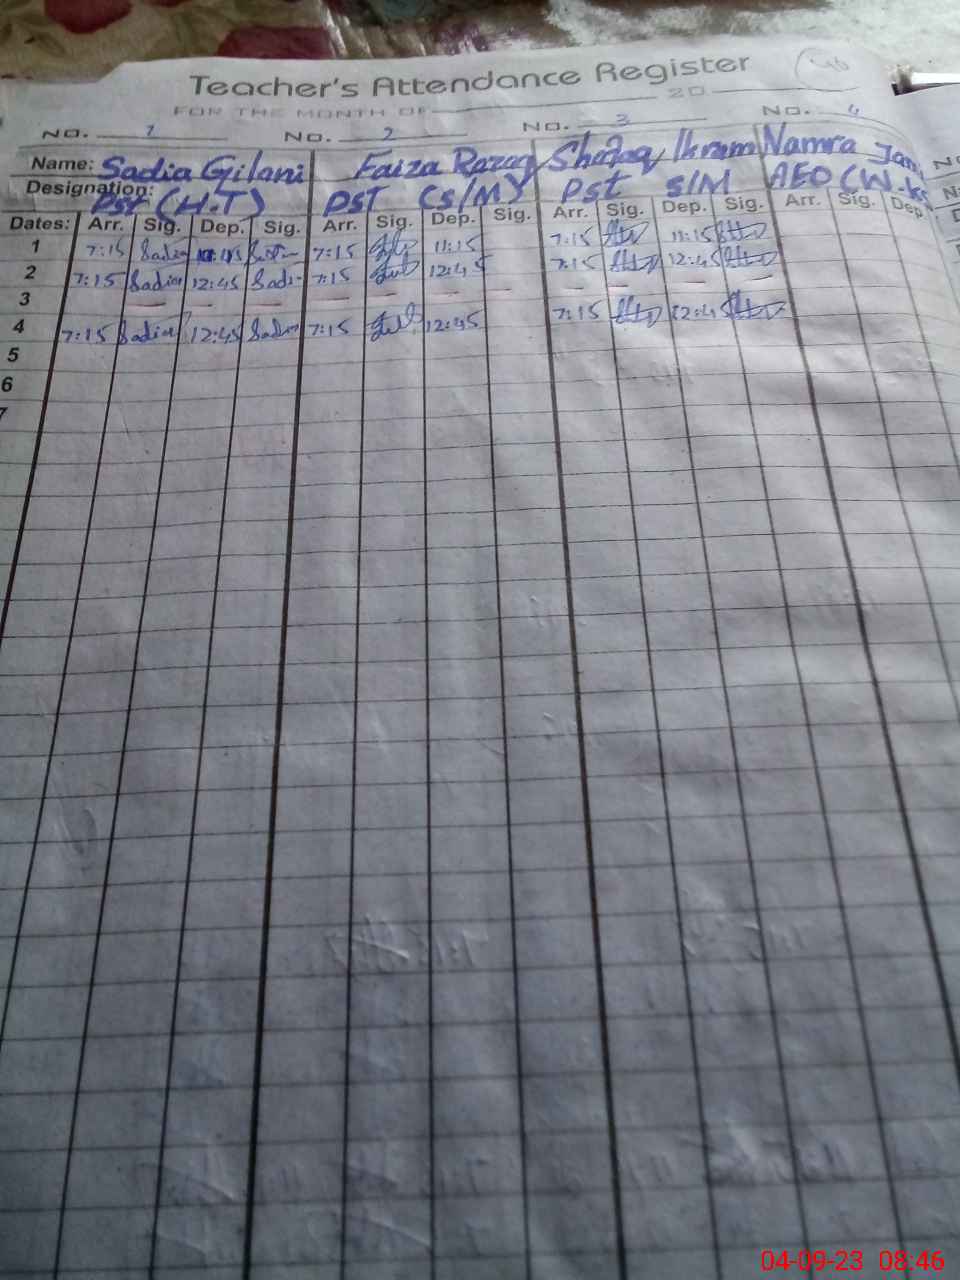 Teacher's Attendance Register
FOR THE MONTH OF 20
No. 1 No. 2 No. 3 No. 4
Name: Sadia Gilani Faiza Razaq Shafaq Ikram Namra
Designation: Pst (H.T) PST (S/M) Pst S/M AEO
Dates: Arr. Sig. Dep. Sig. Arr. Sig. Dep. Sig. Arr. Sig. Dep. Sig. Arr. Sig. Dep.
1 7:15 Sadia 7:15 11:15 7:15 11:15
2 7:15 Sadia 12:45 Sadi 7:15 12:45 7:15 12:45
3 — — — — — — — — — — — —
4 7:15 Sadia 12:45 Sadia 7:15 12:45 7:15 12:45
5
6
7
04-09-23 08:46